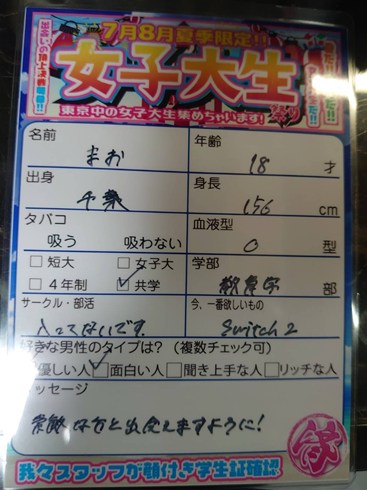 7月8月夏季限定!!
女子大生
祭り
東京中の女子大生集めちゃいます!
名前
まお
年齢
18 才
出身
千葉
身長
156 cm
タバコ
吸う 吸わない
血液型
O 型
短大 女子大
4年制 共学
学部
教育学 部
サークル・部活
入ってないです
今、一番欲しいもの
Switch 2
好きな男性のタイプは?(複数チェック可)
優しい人 面白い人 聞き上手な人 リッチな人
メッセージ
な方と出会えますように!
我々スタッフが顔付き学生証確認